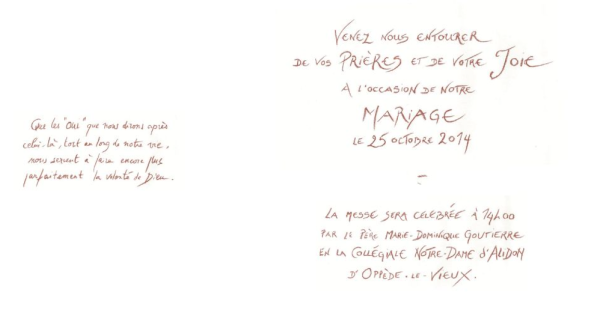 Que les "Oui" que nous dirons après
celui-là, tout au long de notre vie,
nous servent à faire encore plus
parfaitement la volonté de Dieu.
VENEZ NOUS ENTOURER
DE VOS PRIÈRES ET DE VOTRE JOIE
A L'OCCASION DE NOTRE
MARIAGE
LE 25 OCTOBRE 2014
-
LA MESSE SERA CÉLÉBRÉE À 14h00
PAR LE PÈRE MARIE-DOMINIQUE GOUTIERRE
EN LA COLLÉGIALE NOTRE-DAME d'ALIDON
D'OPPÈDE-LE-VIEUX.